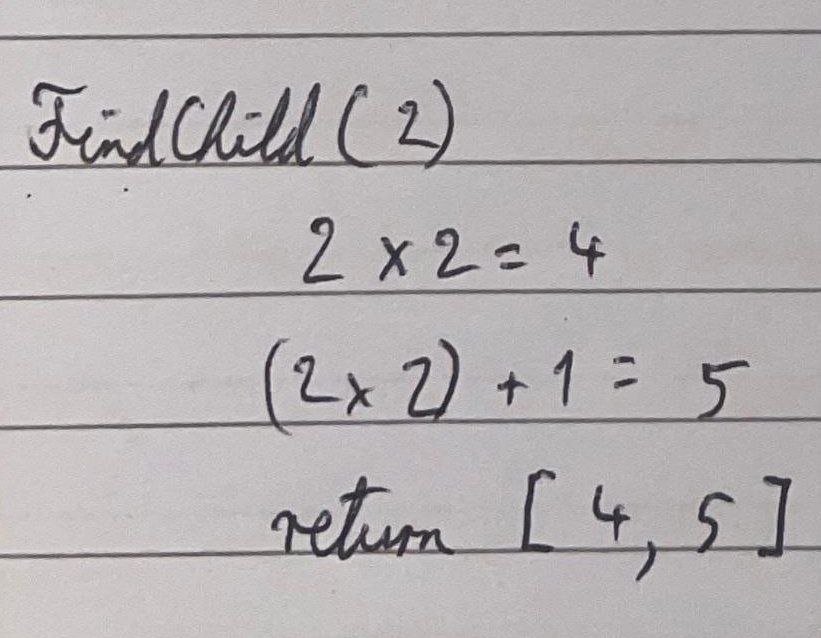 FindChild (2)
2 x 2 = 4
(2 x 2) + 1 = 5
return [4, 5]